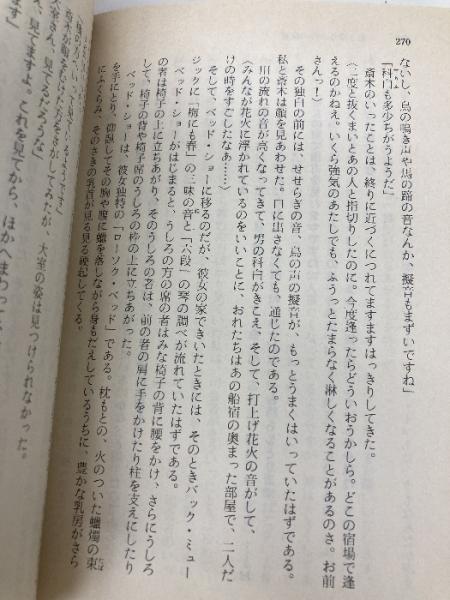 270
ないし、鳥の鳴き声や馬の蹄の音なんか、擬音もまずいですね」
「科白も多少ちがうようだ」
斎木のいったことは、終りに近づくにつれてますますはっきりしてきた。
〈二度と抜くまいとあの人と指切りしたのに。今度逢ったらどういおうかしら。どこの宿場で逢
えるのかねえ。いくら強気のあたしでも、ふうっとたまらなく淋しくなることがあるのさ。お前
さんっ！〉
その独白の前には、せせらぎの音、鳥の声の擬音が、もっとうまくはいっていたはずである。
私と斎木は顔を見あわせた。口に出さなくても、通じたのである。
川の流れの音が高くなってきて、男の科白がきこえ、そして、打上げ花火の音がして、
〈みんなが花火に浮かれているのをいいことに、おれたちはあの船宿の奥まった部屋で、二人だ
けの時をすごしたなあ……〉
そして、ベッド・ショーに移るのだが、彼女の家できいたときには、そのときバック・ミュー
ジックに「梅にも春」の三味の音と「六段」の琴の調べが流れていたはずである。
ベッド・ショーがはじまると、うしろの方の席の者はみな椅子の背に腰をかけ、さらにうしろ
の者は椅子の上に立ちあがり、そのうしろの者は、前の者の肩に手をかけたり柱を支えにしたり
して、椅子の背や椅子席のうしろの枠の上に立ちあがった。
ベッド・ショーは、彼女独特の「ローソク・ベッド」である。枕もとの、火のついた蠟燭の束
を手にとり、仰臥してその胸や腹に蠟を落しながら身もだえしているうちに、豊かな乳房がさら
にふくらみ、そのさきの乳首が見る見る勃起してくる。
大室の姿は見つけられなかった。
大室さん、見てるだろうな」
見てますよ。これを見てから、ほかへまわって、
ます」